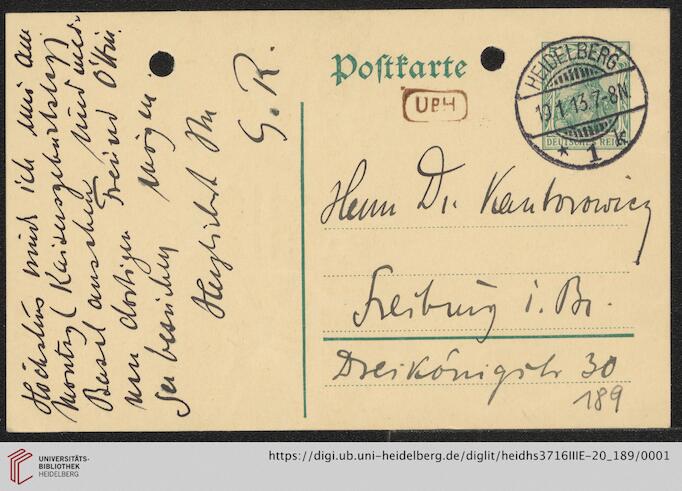 Höchstens muß ich mir am
Montag (Kaisersgeburtstag)
Basel ansehen und mei-
nen dortigen Freund
besuchen mögen
Herzlichst Ihr
G. R.
Postkarte
UBH
HEIDELBERG
19.1.13.7-8N
* 1 k
DEUTSCHES REICH
Herrn Dr. Kantorowicz
Freiburg i. Br.
Dreikönigstr 30
189
UNIVERSITÄTS-
BIBLIOTHEK
HEIDELBERG
https://digi.ub.uni-heidelberg.de/diglit/heidhs3716IIIE-20_189/0001